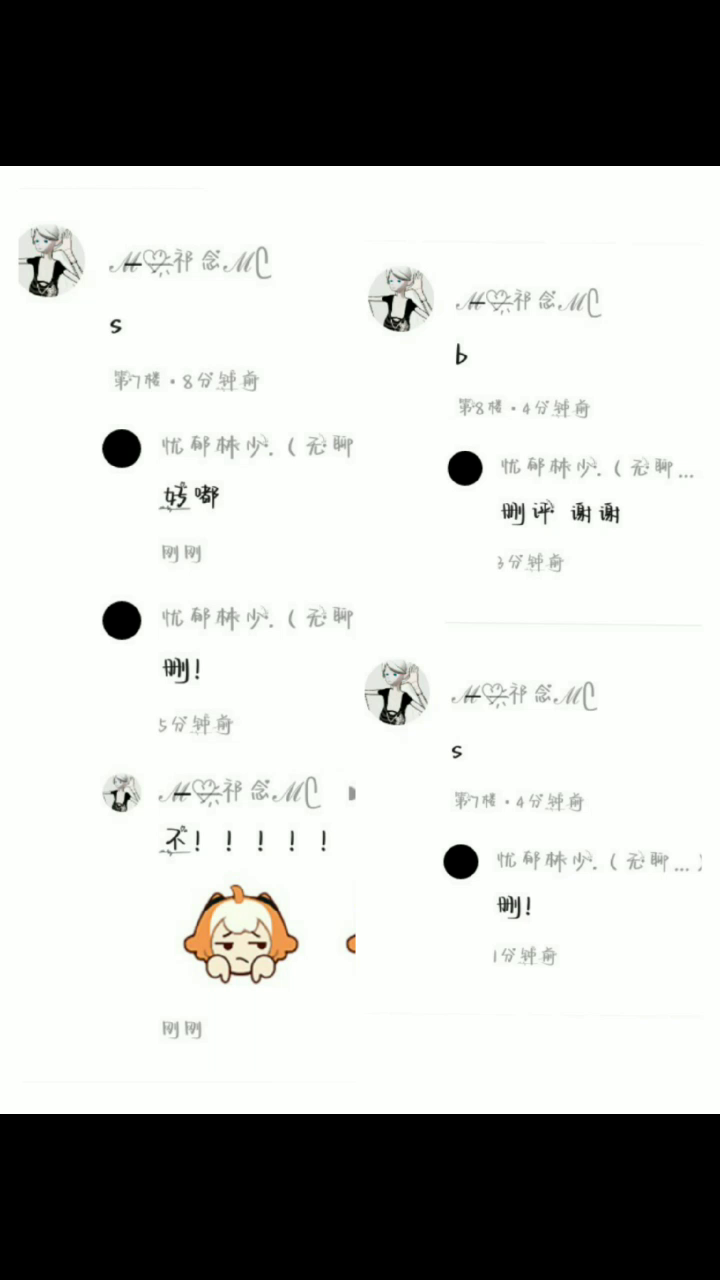 M祁念MC
s
第7楼·8分钟前
忧郁林少.(无聊
妈嘟
刚刚
忧郁林少.(无聊
删!
5分钟前
M祁念MC
不!!!!!
刚刚
M祁念MC
b
第8楼·4分钟前
忧郁林少.(无聊...
删评 谢谢
3分钟前
M祁念MC
s
第7楼·4分钟前
忧郁林少.(无聊...)
删!
1分钟前